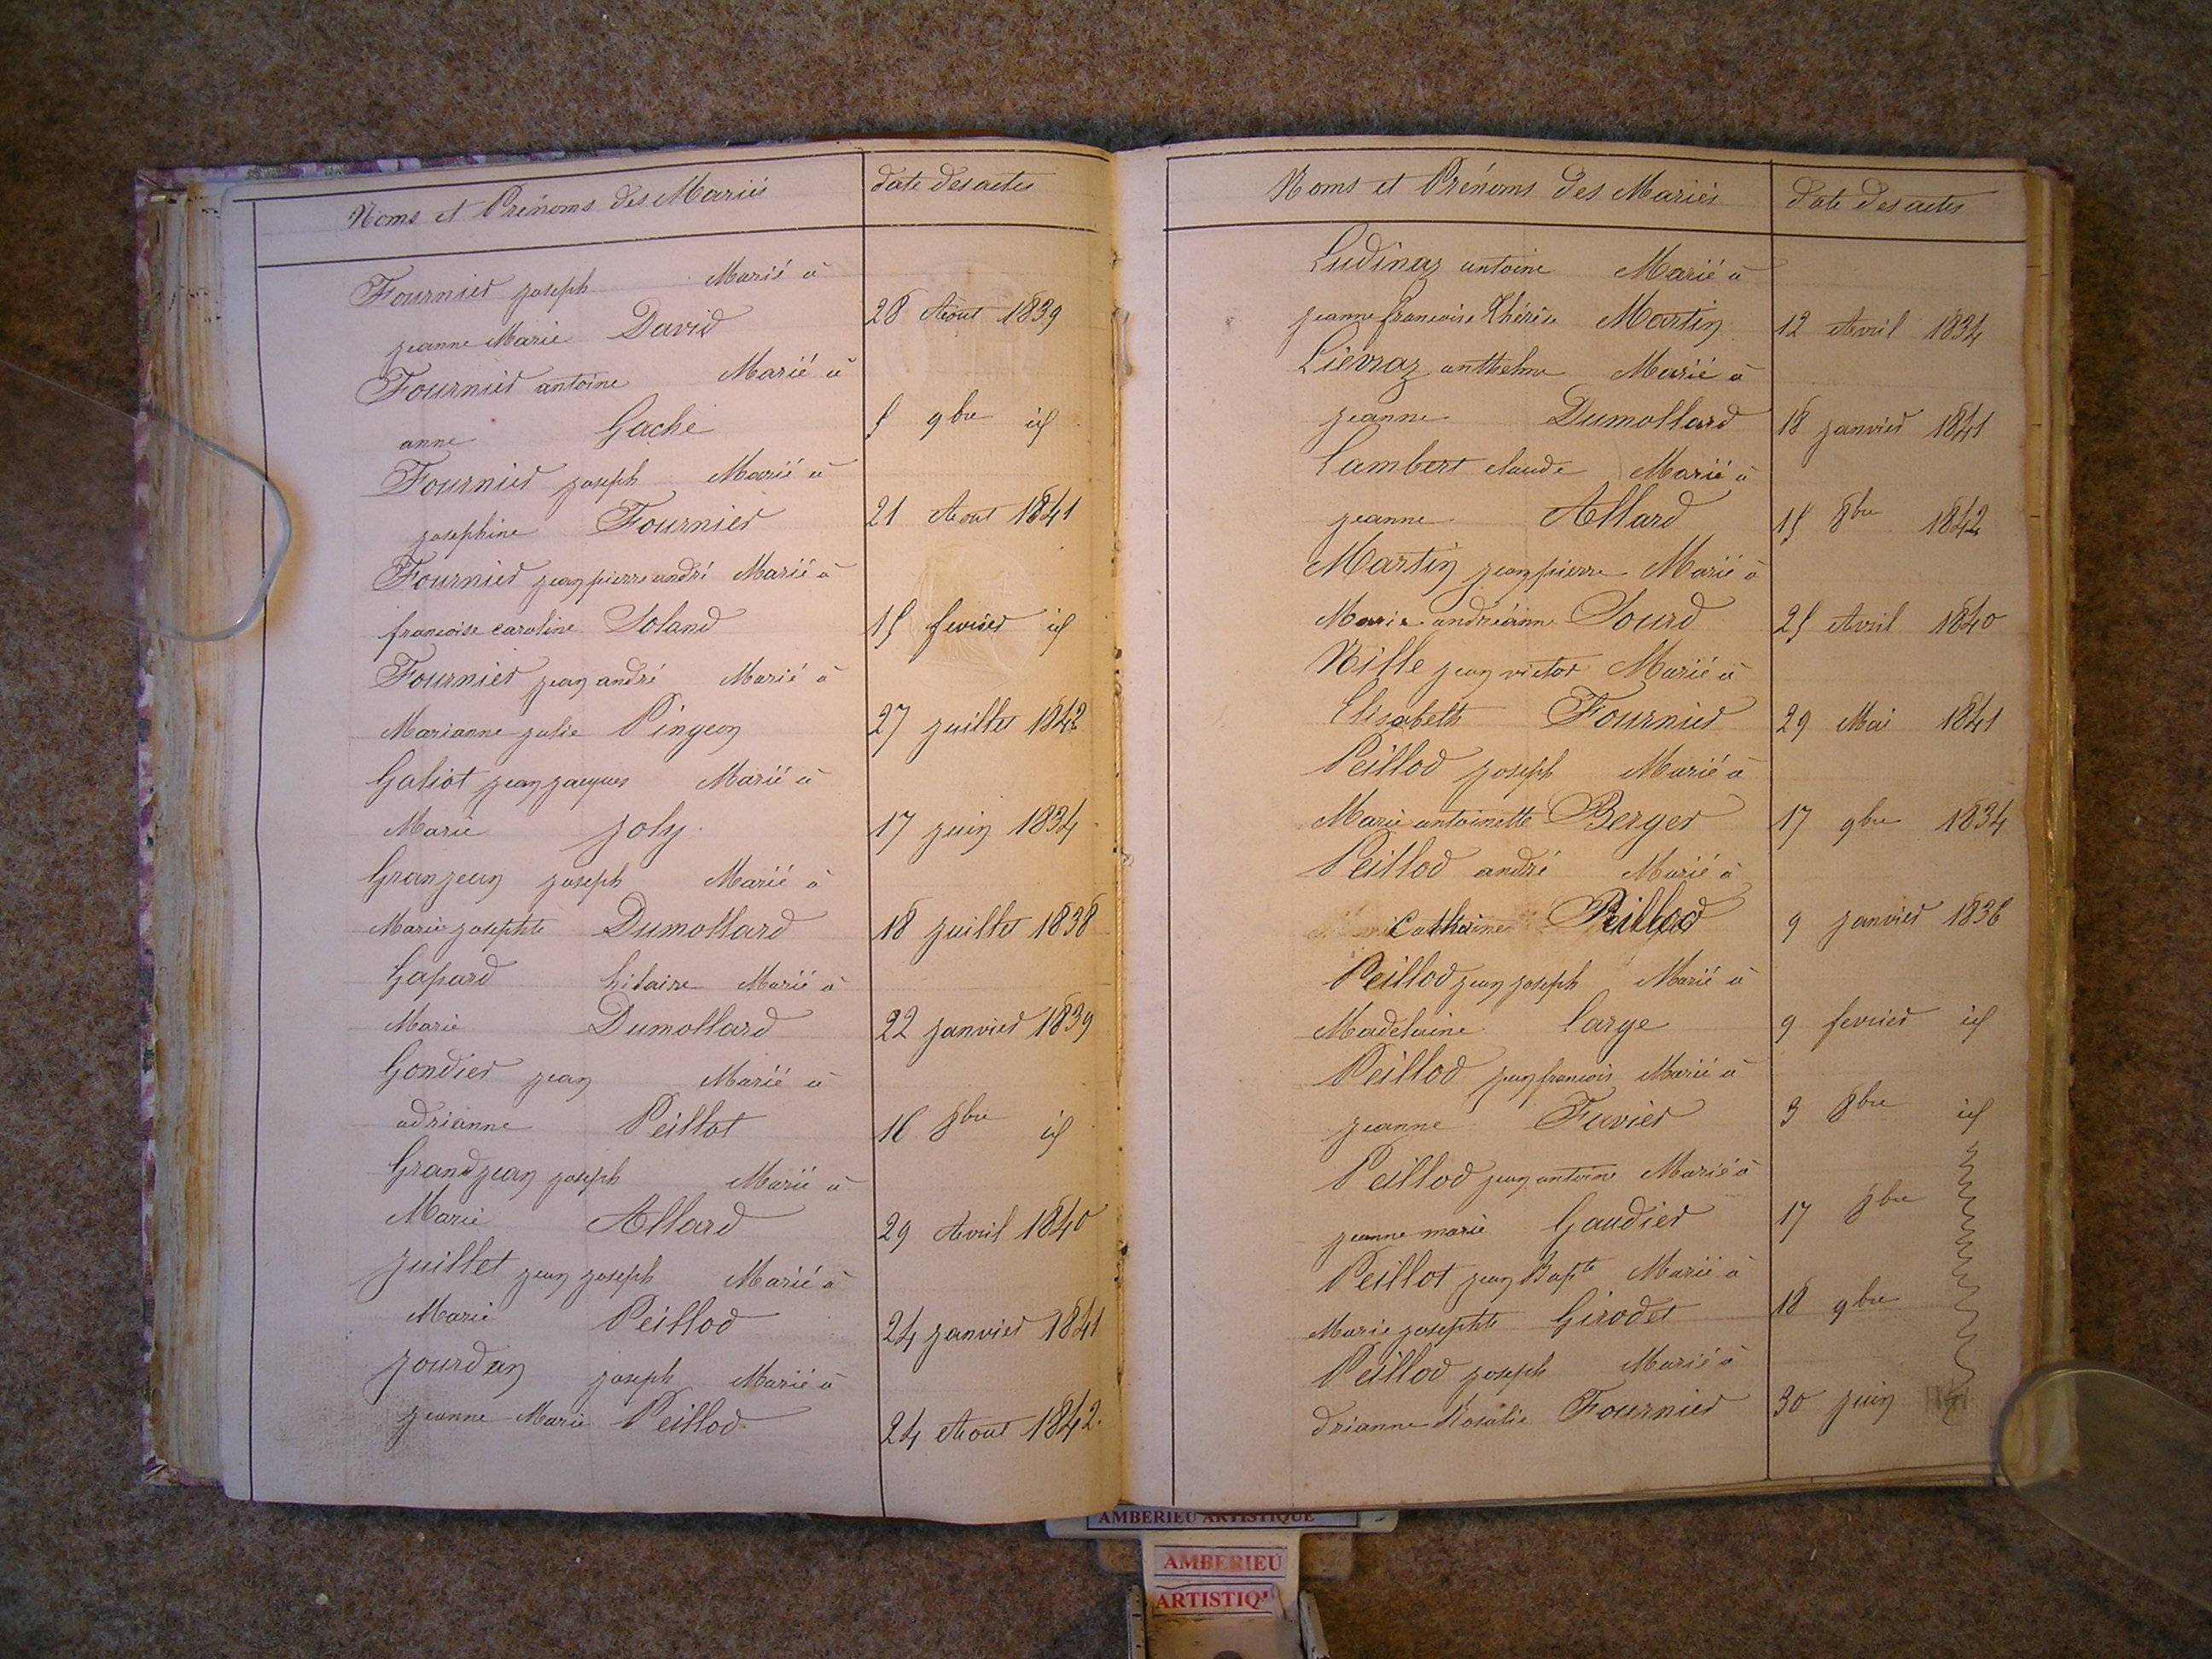 Noms et Prénoms des Mariés date des actes
Fournier joseph Marié à
jeanne Marie David 28 Aout 1839
Fournier antoine Marié à
anne Gache 5 9bre id
Fournier joseph Marié à
josephine Fournier 21 Aout 1841
Fournier jean pierre andré Marié à
francoise caroline Soland 15 fevrier id
Fournier jean andré Marié à
Marianne julie Pingeon 27 juillet 1842
Galiot jean jacques Marié à
Marie joly 17 juin 1834
Granjean joseph Marié à
Marie josephte Dumollard 18 juillet 1838
Gapard hilaire Marié à
Marie Dumollard 22 janvier 1839
Gondier jean Marié à
adrianne Peillot 16 8bre id
Grandjean joseph Marié à
Marie Allard 29 Avril 1840
juillet jean joseph Marié à
Marie Peillod 24 janvier 1841
jourdan joseph Marié à
jeanne Marie Peillod 24 Aout 1842
Noms et Prénoms des Mariés date des actes
Ludinaz antoine Marié à
jeanne francoise Thérèse Martin 12 Avril 1834
Lièvraz anthelme Marié à
jeanne Dumollard 18 janvier 1841
Lambert claude Marié à
jeanne Allard 15 8bre 1842
Martin jean pierre Marié à
Marie andréanne Sourd 25 Avril 1840
Nille jean victor Marié à
Elisabeth Fournier 29 Mai 1841
Peillod joseph Marié à
Marie antoinette Berger 17 9bre 1834
Peillod andré Marié à
Catherine Peillod 9 janvier 1836
Peillod jean joseph Marié à
Madelaine Large 9 fevrier id
Peillod jean francois Marié à
jeanne Fuvier 3 8bre id
Peillod jean antoine Marié à
jeanne marie Gaudier 17 8bre
Peillot jean Bapte Marié à
Marie josephte Girodet 18 9bre
Peillod joseph Marié à
drianne Rosalie Fournier 30 juin
AMBERIEU ARTISTIQUE
AMBERIEU
ARTISTIQ'